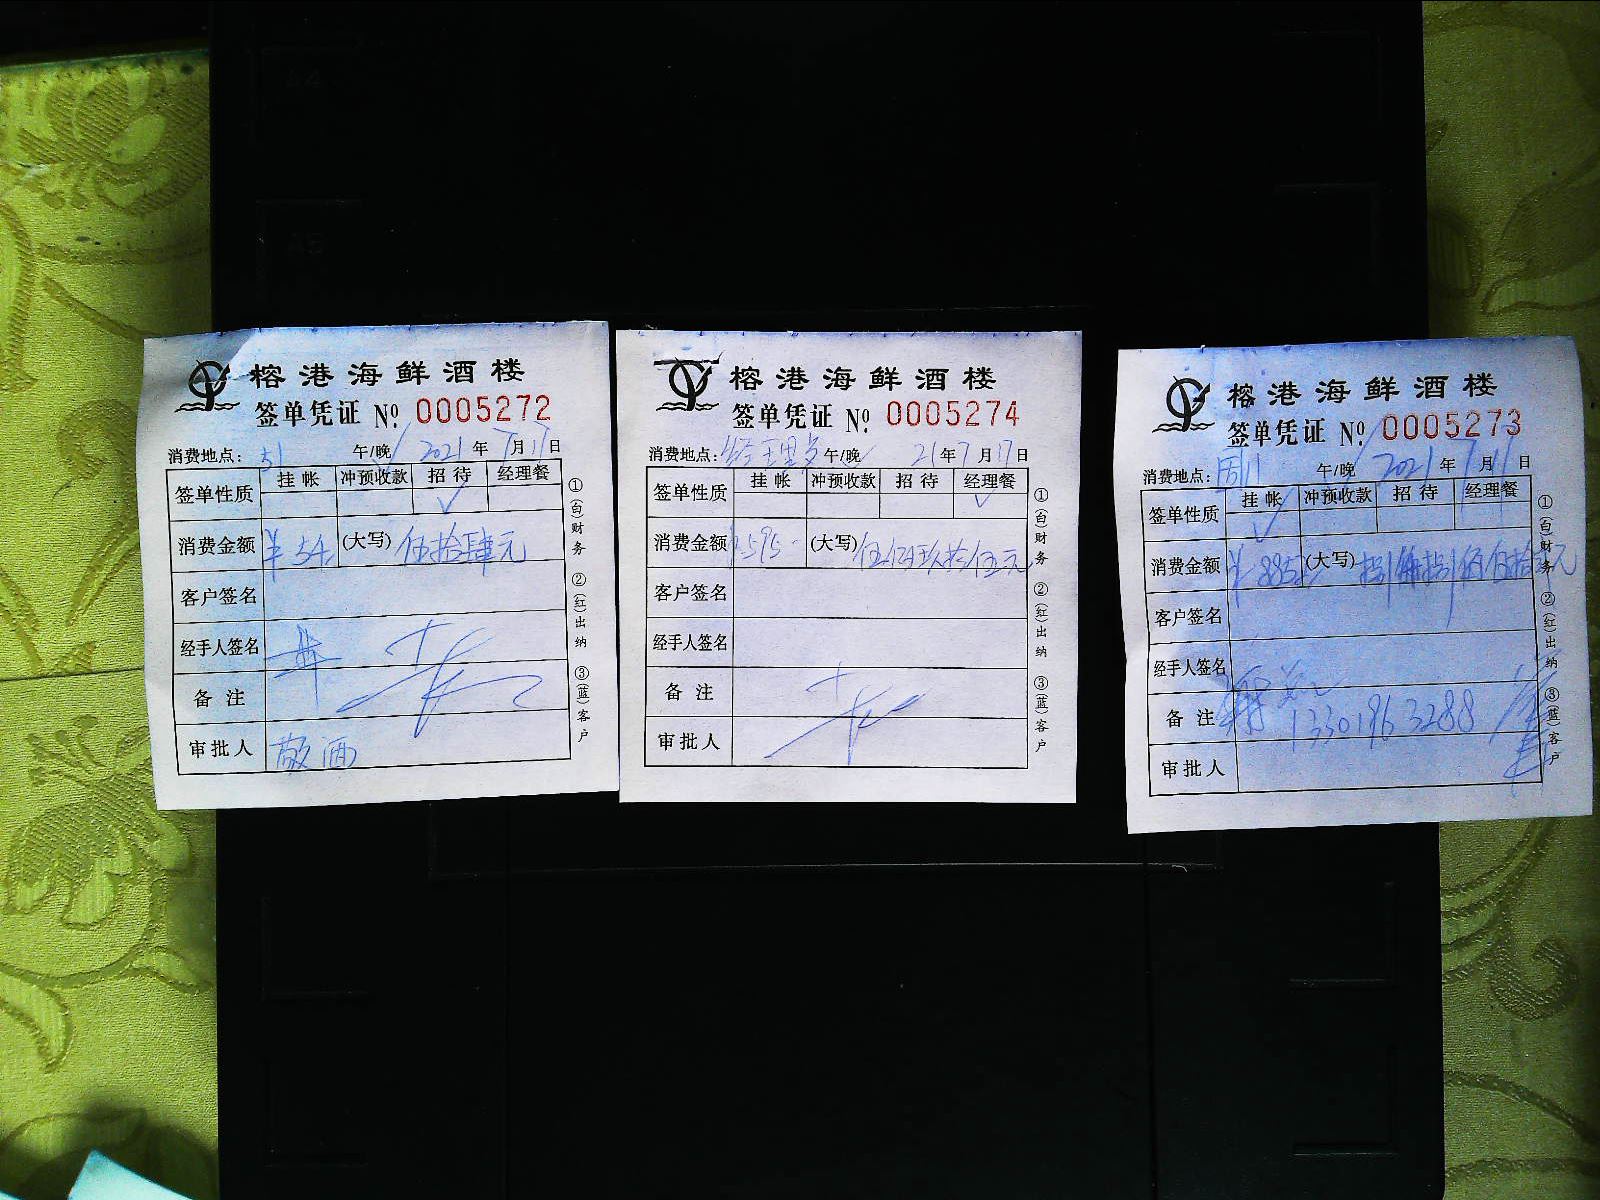 榕港海鲜酒楼
签单凭证 № 0005272
消费地点： 午/晚 2021年7月17日
签单性质 挂帐 冲预收款 招待 经理餐
✓
消费金额 ¥54 (大写) 伍拾肆元
客户签名
经手人签名
备注
审批人 敬酒
①(白)财务 ②(红)出纳 ③(蓝)客户
榕港海鲜酒楼
签单凭证 № 0005274
消费地点：经理 午/晚 21年7月17日
签单性质 挂帐 冲预收款 招待 经理餐
✓
消费金额 595 (大写) 伍佰玖拾伍元
客户签名
经手人签名
备注
审批人
①(白)财务 ②(红)出纳 ③(蓝)客户
榕港海鲜酒楼
签单凭证 № 0005273
消费地点： 午/晚 2021年7月17日
签单性质 挂帐 冲预收款 招待 经理餐
✓
消费金额 (大写)
客户签名
经手人签名
备注 13301963288
审批人
①(白)财务 ②(红)出纳 ③(蓝)客户